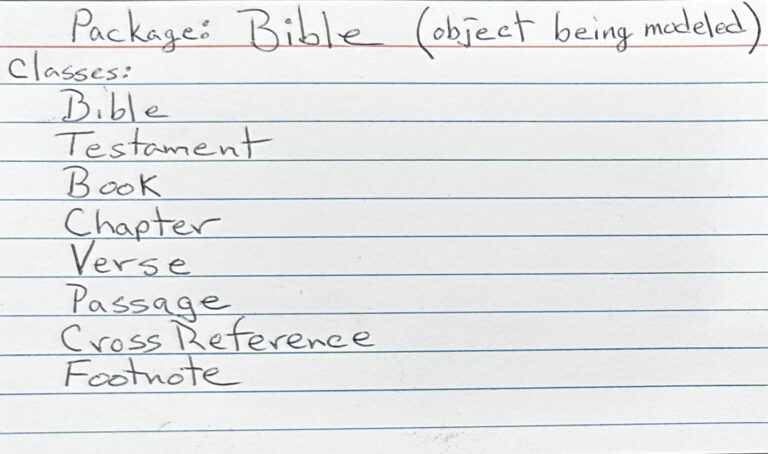 Package: Bible (object being modeled)
Classes:
Bible
Testament
Book
Chapter
Verse
Passage
Cross Reference
Footnote